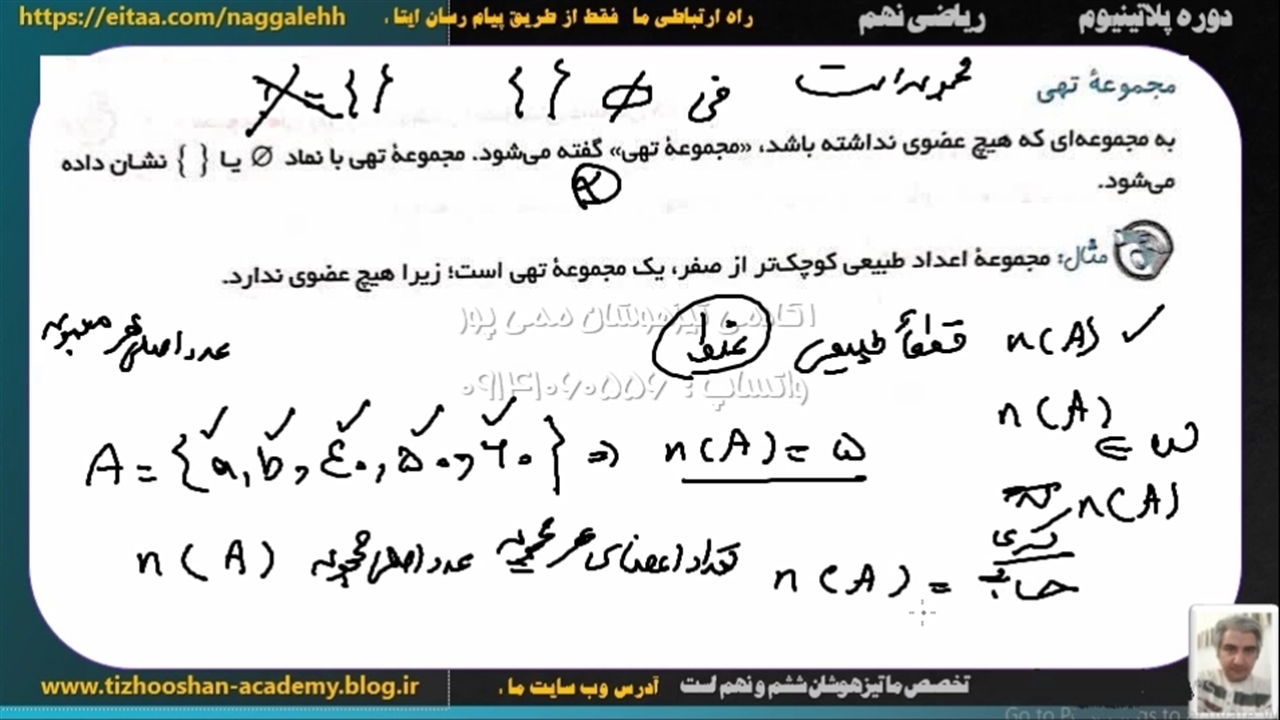 دوره پلاتینیوم
ریاضی نهم
راه ارتباطی ما فقط از طریق پیام رسان ایتا ،
https://eitaa.com/naggalehh
مجموعهٔ تهی
فی ∅ { }
{ } =
به مجموعه‌ای که هیچ عضوی نداشته باشد، «مجموعهٔ تهی» گفته می‌شود. مجموعهٔ تهی با نماد ∅ یا { } نشان داده
می‌شود.
مثال: مجموعهٔ اعداد طبیعی کوچک‌تر از صفر، یک مجموعهٔ تهی است؛ زیرا هیچ عضوی ندارد.
اکادمی تیزهوشان ممی پور
واتساپ : ۰۹۱۴۱۰۶۰۵۵۶
n(A) ✓ قطعاً طبیعی غلط
عدد اصلی هر مجموعه
n(A) = ۳
A = {a, b, ۴۰, ۵۰, ۶۰} ⇒ n(A) = ۵
n(A)
n(A) =
تعداد اعضای هر مجموعه عدد اصلی مجموعه n(A)
تخصص ما تیزهوشان ششم و نهم است
آدرس وب سایت ما ،
www.tizhooshan-academy.blog.ir